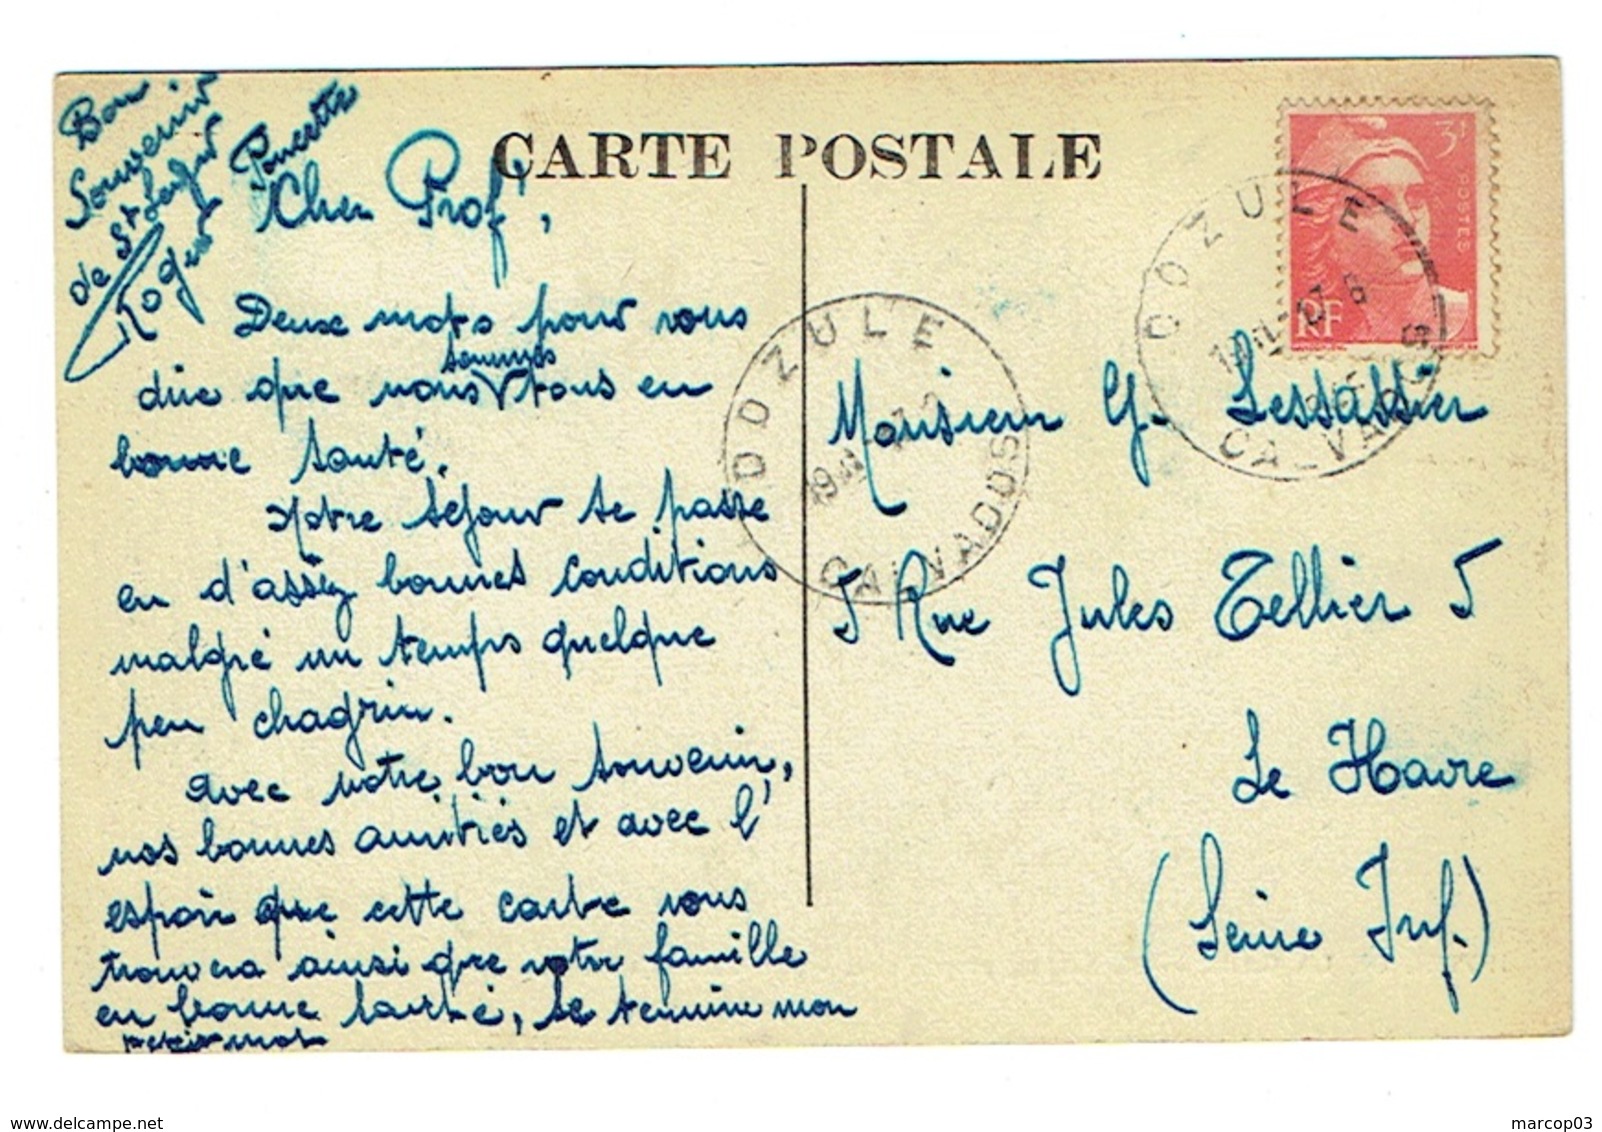 Bon
Souvenir
de St Léger
Roger Poucette
CARTE POSTALE
3f
POSTES
RF
Cher Prof',
Deux mots pour vous
dire que nous sommes tous en
bonne santé.
Notre séjour se passe
en d'assez bonnes conditions
malgré un temps quelque
peu chagrin.
Avec notre bon souvenir,
nos bonnes amitiés et avec l'
espoir que cette carte vous
trouvera ainsi que votre famille
en bonne santé, je termine mon
petit mot
DOZULE
CALVADOS
DOZULE
CALVADOS
Monsieur G. Lessassier
5 Rue Jules Tellier 5
Le Havre
(Seine Inf.)
www.delcampe.net
marcop03